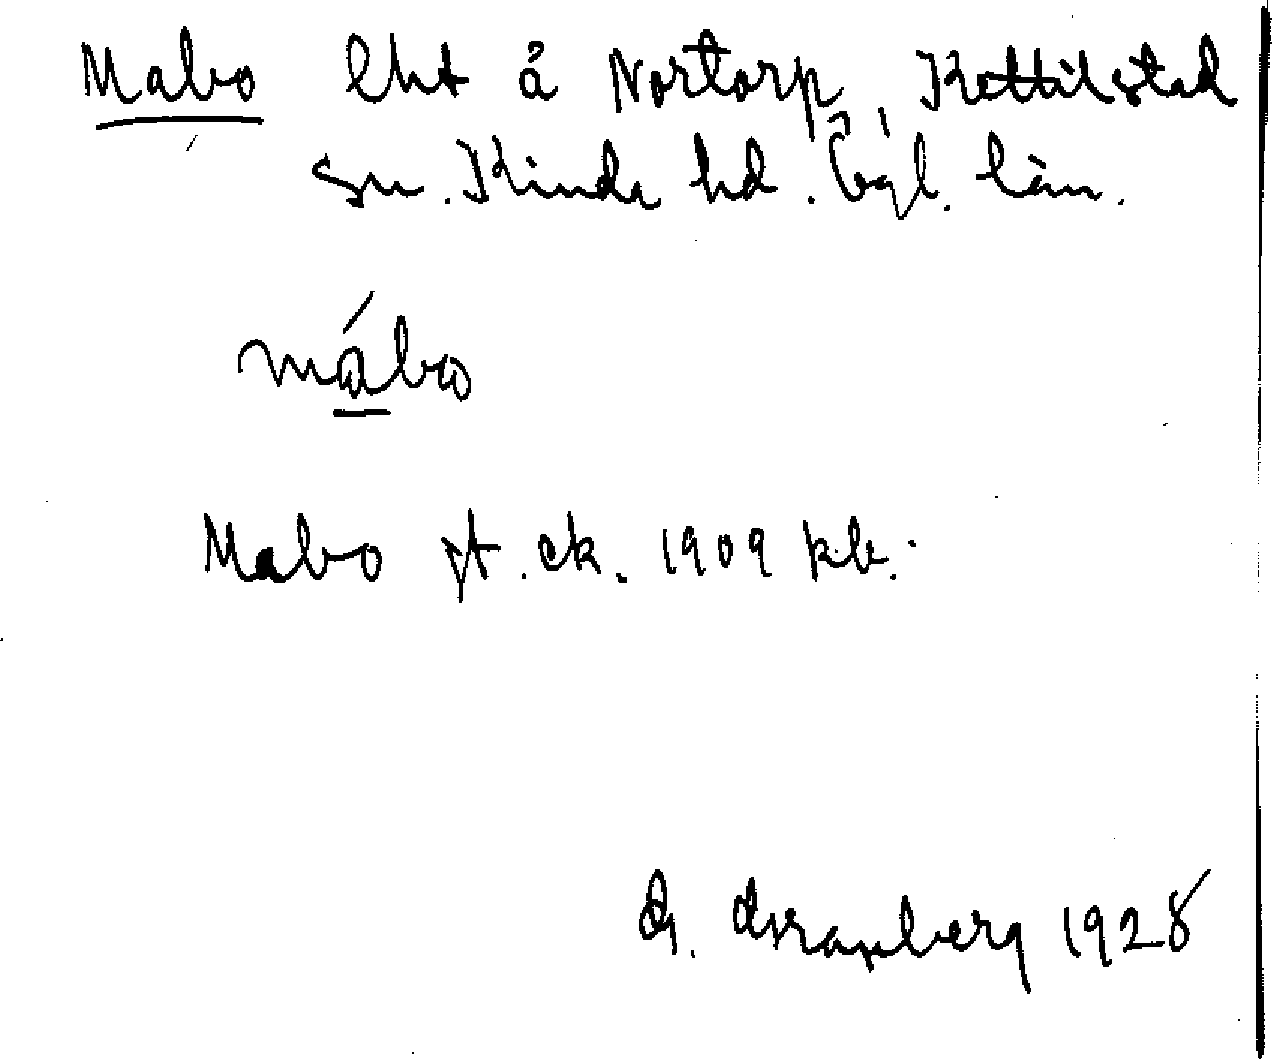 Mabo lht å Nortorp, Kettilstad
sn. Kinda hd. Ögl. län.
mábo
Mabo jt. ek. 1909 kb.
G. Granberg 1928